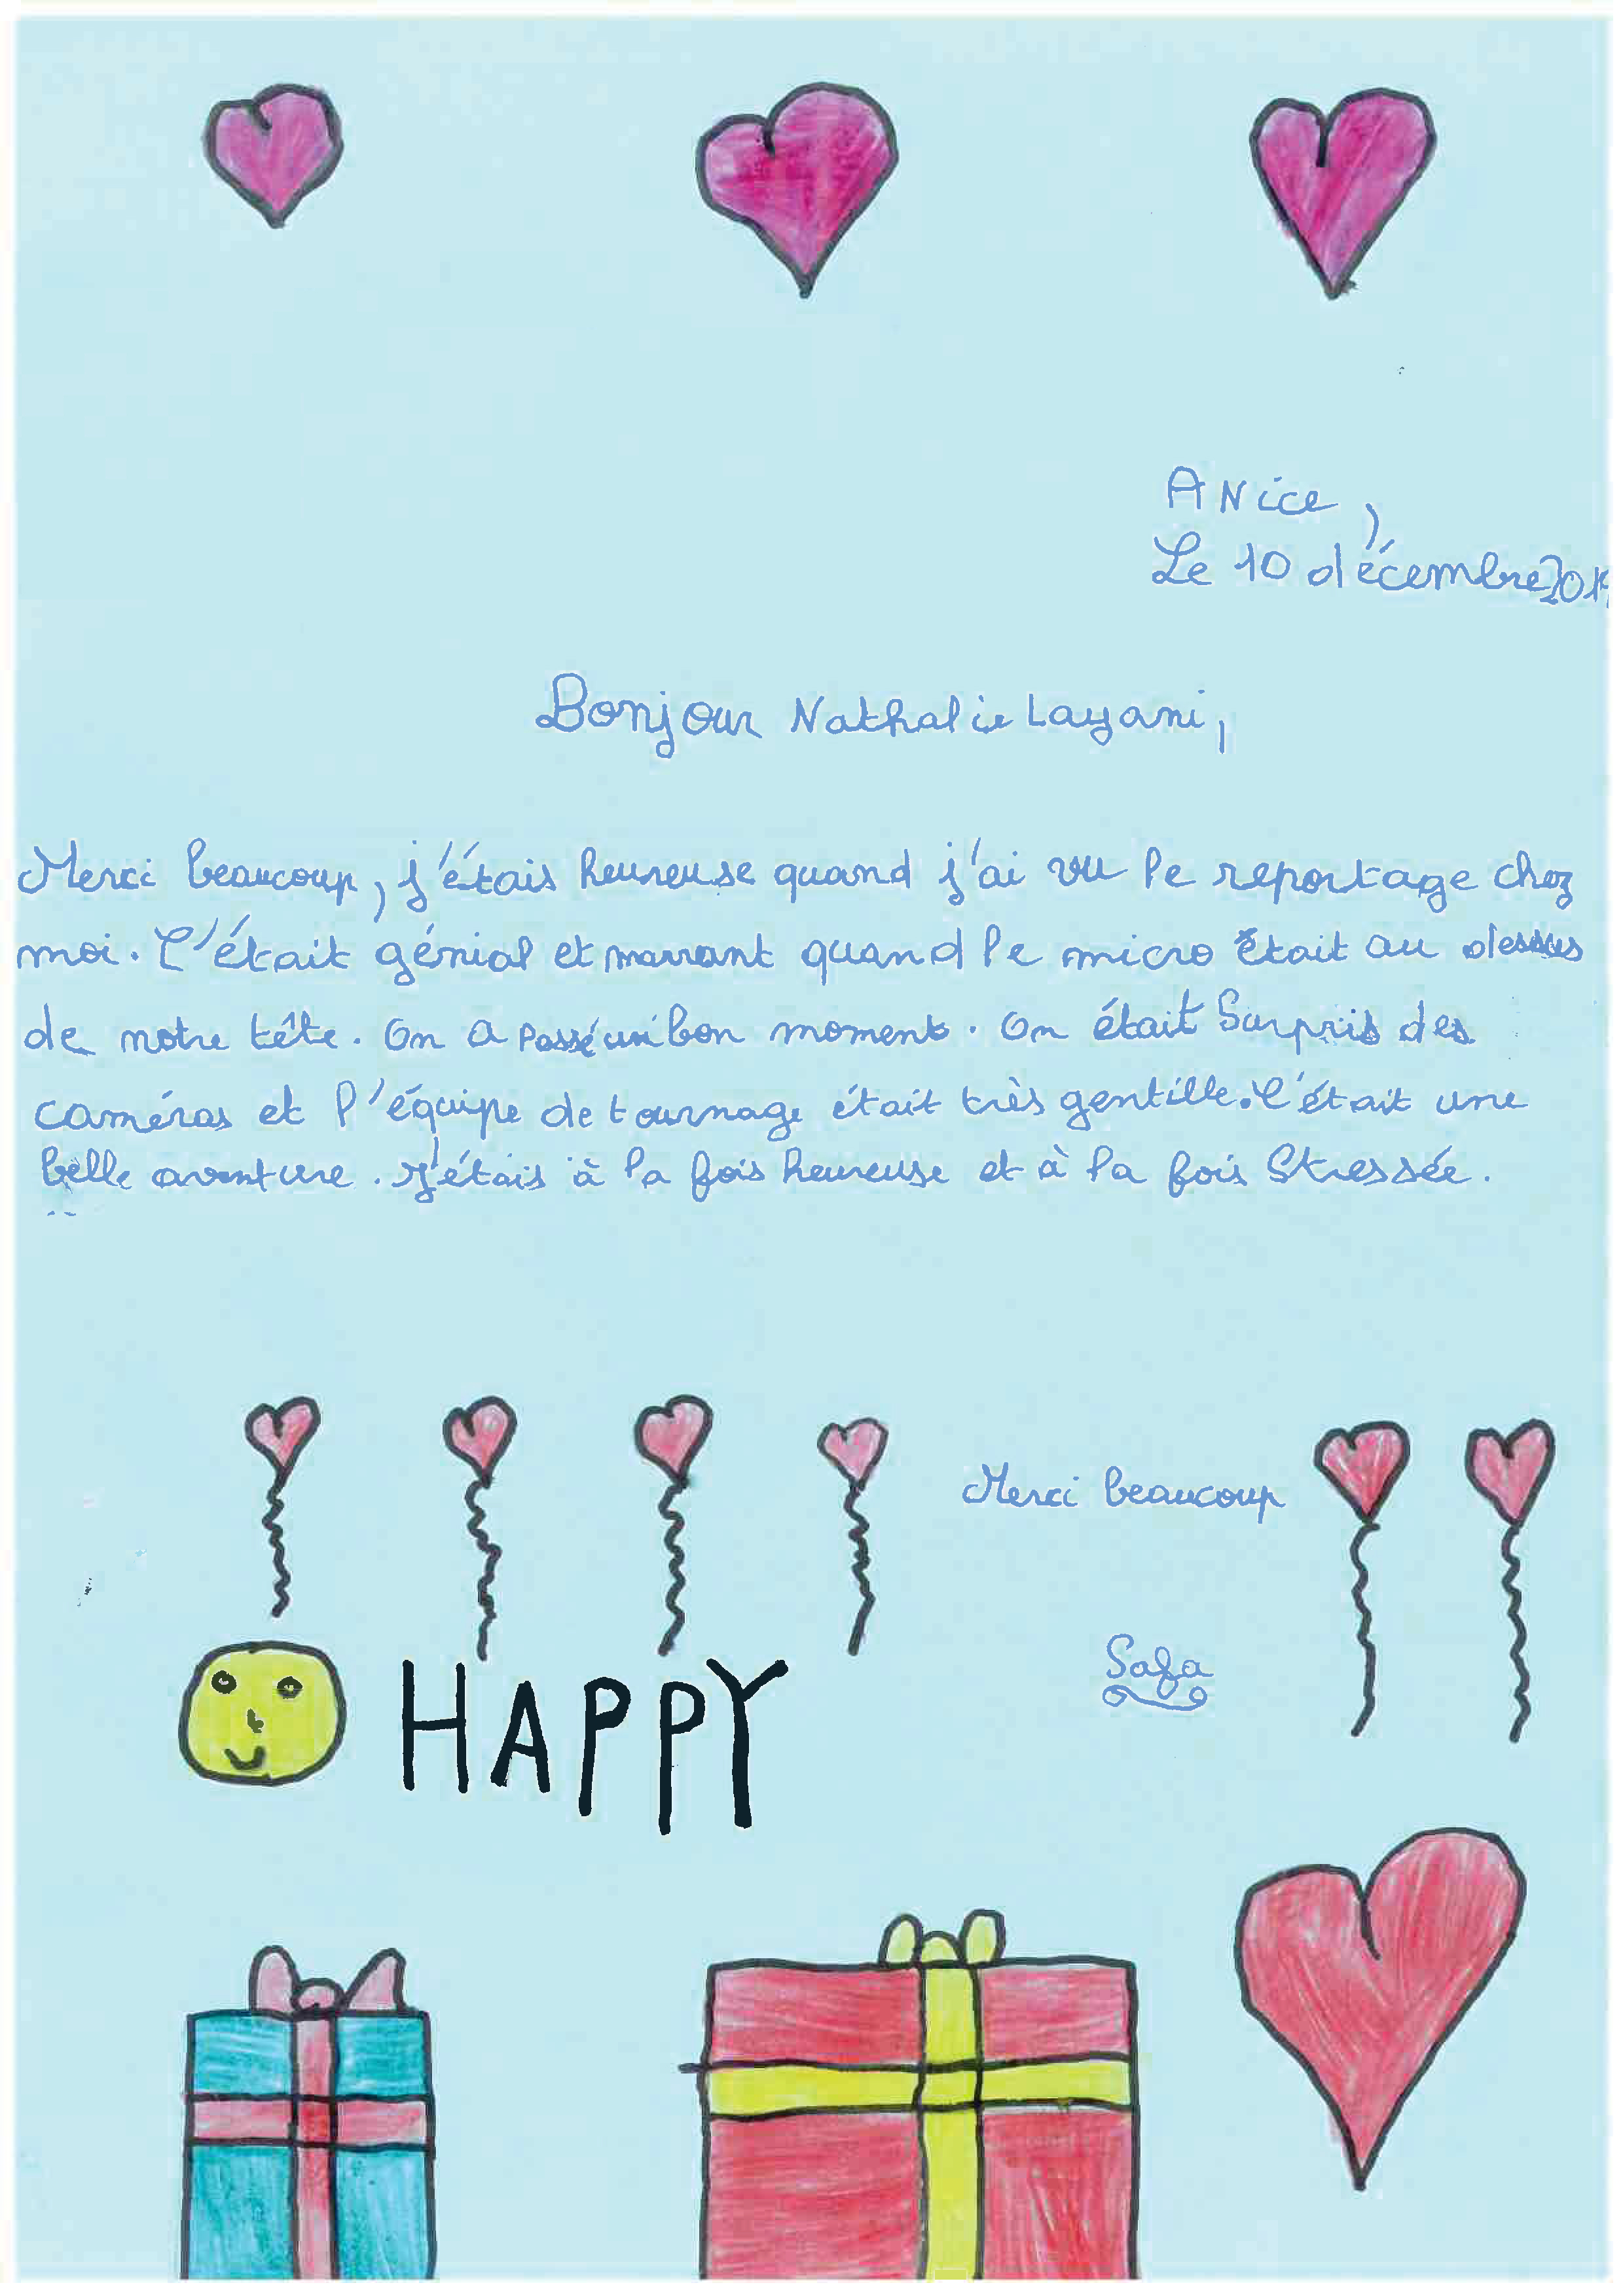 A Nice,
Le 10 décembre 201
Bonjour Nathalie Layani,
Merci beaucoup, j'étais heureuse quand j'ai vu le reportage chez
moi. C'était génial et marrant quand le micro était au dessus
de notre tête. On a passé un bon moment. On était Surpris des
caméras et l'équipe de tournage était très gentille. C'était une
belle aventure. J'étais à la fois heureuse et à la fois Stressée.
Merci beaucoup
Safa
HAPPY